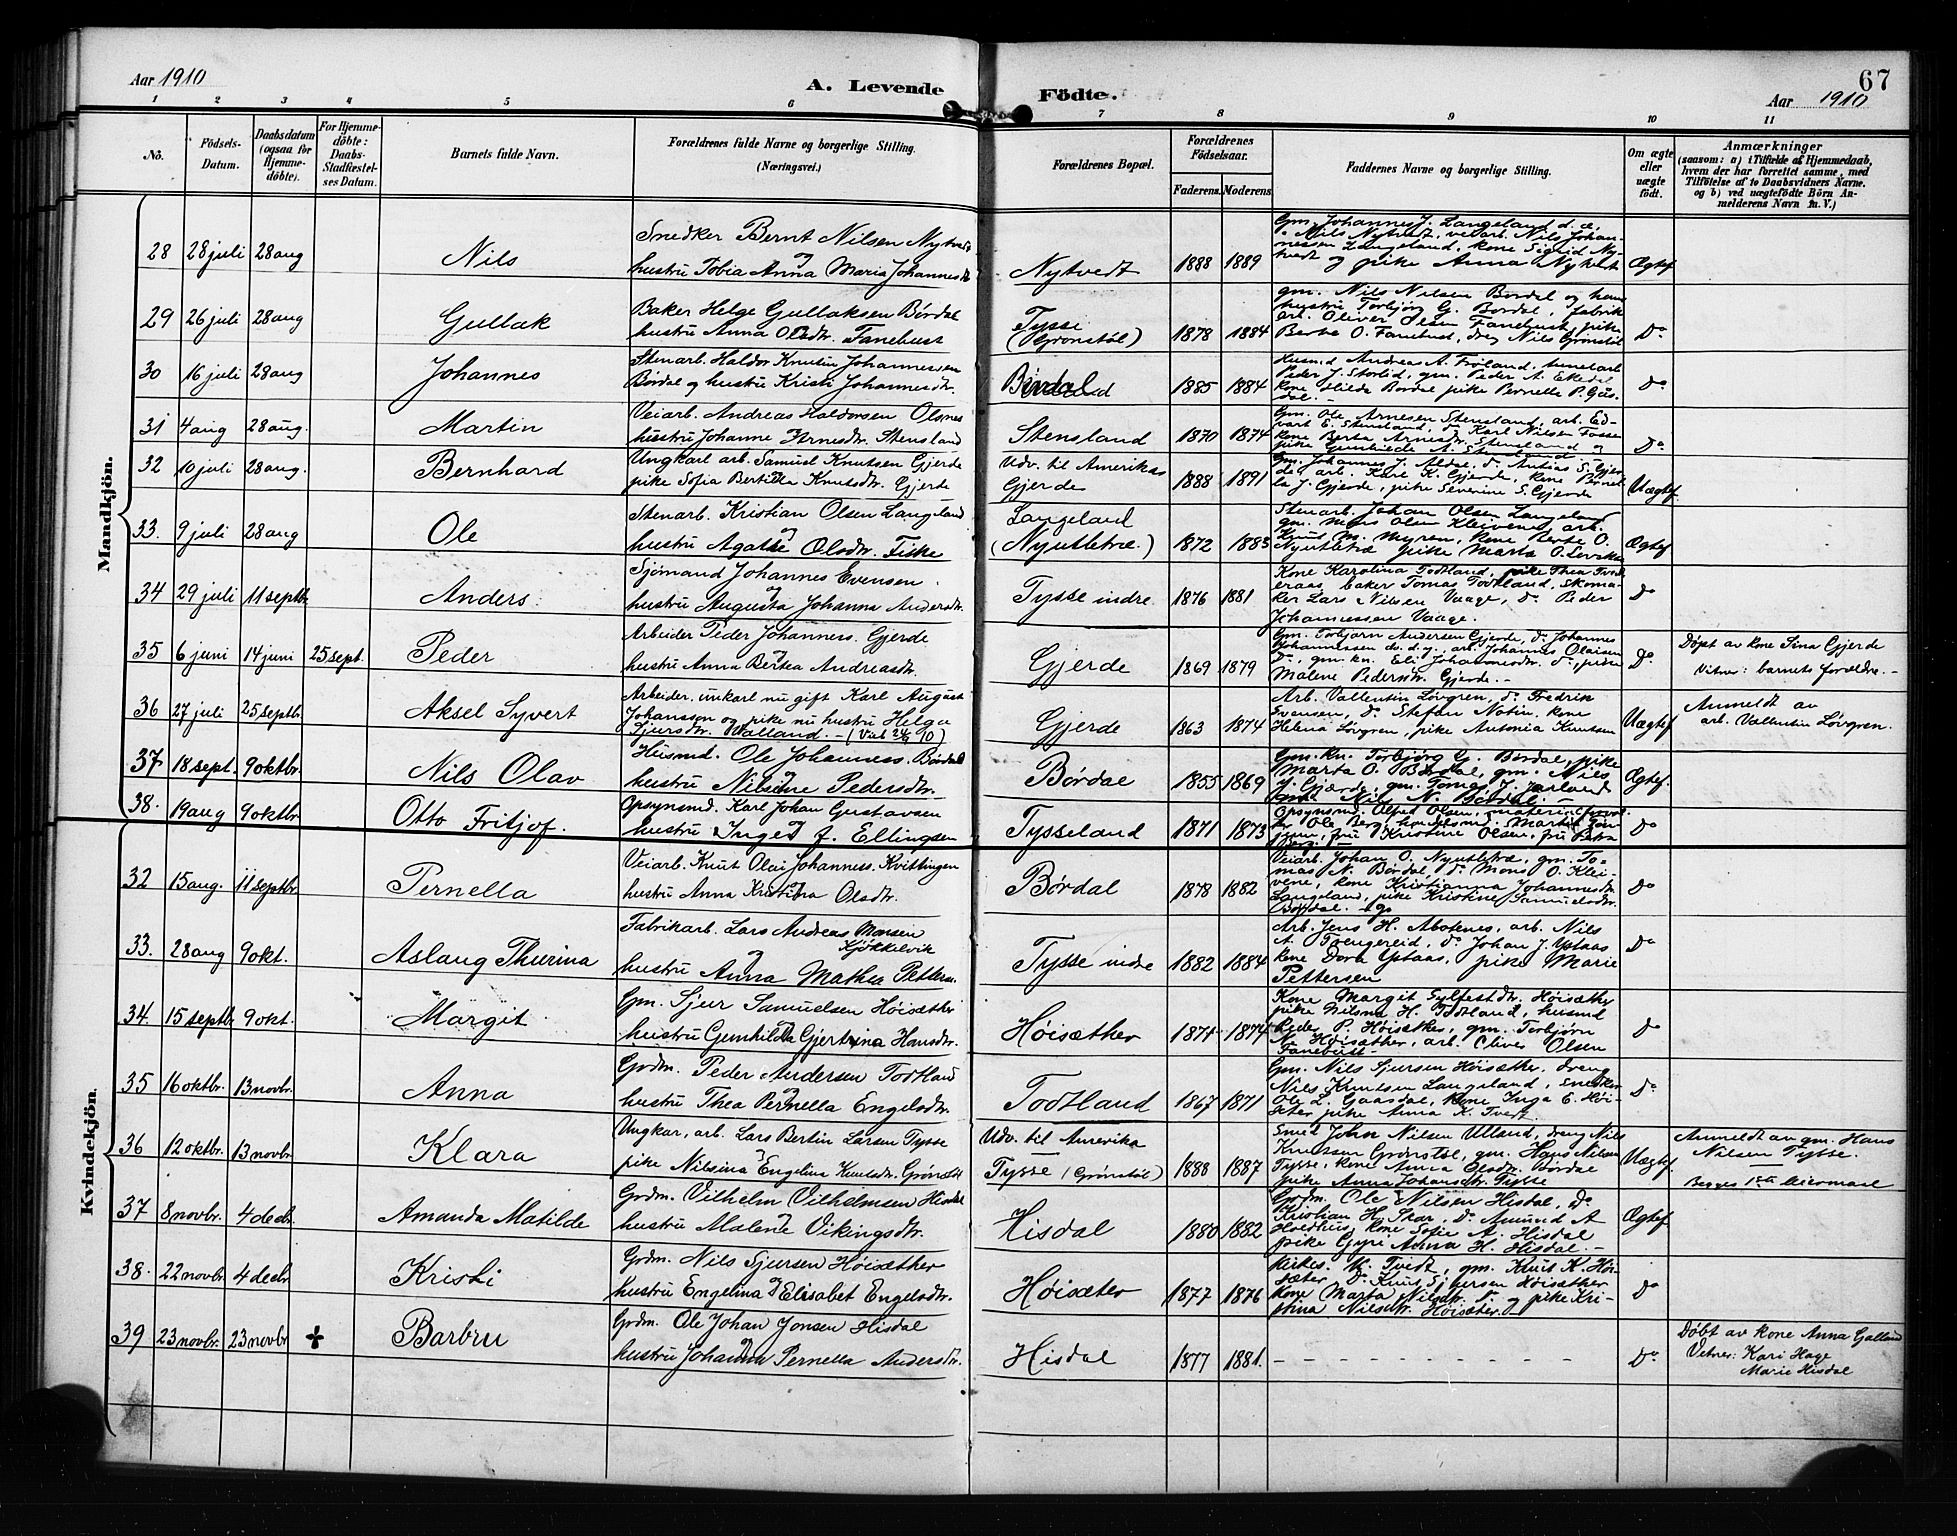 Aar 1910
A. Levende Födte.
67
Aar 1910
1 2 3 4 5 6 7 8 9 10 11
No.
Födsels-Datum.
Daabsdatum (ogsaa for Hjemme-döbte).
For Hjemme-döbte: Daabs-Stadfæstel-ses Datum.
Barnets fulde Navn.
Forældrenes fulde Navne og borgerlige Stilling.
(Næringsvei.)
Forældrenes Bopæl.
Forældrenes Födselsaar.
Faderens. Moderens.
Faddernes Navne og borgerlige Stilling.
Om ægte eller uægte födt.
Anmærkninger
(saasom: a) i Tilfælde af Hjemmedaab,
hvem der har forrettet samme, med
Tilföielse af to Daabsvidners Navne.
og b) ved uægtefödte Börn An-
melderens Navn m. V.)
Mandkjön.
28 28 juli 28 aug Nils
Snedker Bernt Nilsen Nytvedt
hustru Tobia Anna Maria Johannesdtr
Nytvedt 1888 1889
Gm. Johannes J. Langeland, d. o.
Nils Nytvedt, veiarb. Nils Johan-
nessen Langeland, kone Sigrid Ny-
tvedt og pike Anna Nytvedt
Ægtef
29 26 juli 28 aug Gullak
Baker Helge Gullaksen Børdal
hustru Anna Olsdtr. Fanebust
Tysse
(Grønstøl) 1878 1884
gm. Nils Nilsen Børdal og hans
hustru Torbjør G. Børdal, fabrik
arb. Oliver Olsen Fanebust, pike
Berta O. Fanebust, dreng Nils Grønstøl
Do
30 16 juli 28 aug Johannes
Stenarb. Haldor Knutsen Johannessen
Børdal og hustru Kristi Johannesdtr.
Børdal 1885 1884
Husmd Andreas A. Frøland, Anne arb
Peder J. Storlid, gm. Peder A. Ekedal
kone Hilde Børdal pike Pernelle P. Gus-
dal. -
Do
31 4 aug 28 aug. Martin
Veiarb. Andreas Haldorsen Olsnes
hustru Johanne Arnesdtr. Stensland
Stensland 1870 1874
Gm. Ole Arnesen Stensland, arb. Ed-
vart E. Stensland, do Karl Nilsen Fosse
kone Berta Arnesdtr. Stensland og
pike Gunhilde A. Stensland
Do
32 10 juli 28 aug. Bernhard
Ungkarl arb. Samuel Knutsen Gjerde
pike Sofia Bertilla Knutsdtr. Gjerde
Udv. til Amerika
Gjerde 1888 1891
Gm. Johannes J. Aldal, do Antias S. Gjer-
de, arb. Kare K. Gjerde, kone Pernil-
le J. Gjerde, pike Severine S. Gjerde
Uægtef.
33. 9 juli 28 aug Ole
Stenarb. Kristian Olsen Langeland
hustru Agathe Olsdtr. Fiske
Langeland
(Nyutletræ.) 1872 1883
Stenarb. Johan Olsen Langeland
gm. Mons Olsen Kleivene, arb.
Knut M. Myren, kone Berte O.
Nyutletræ pike Marta O.
Ægtef
34 29 juli 11 septbr Anders.
Sjømand Johannes Evensen
hustru Augusta Johanna Andersdtr.
Tysse indre 1876 1881
Kone Karolina Todtland, pike Thea Tved-
eraas, baker Tomas Todtland, skoma-
ker Lars Nilsen Vaage, do Peder
Johannessen Vaage.
Do
35 6 juni 14 juni 25 sept. Peder
Arbeider Peder Johanness. Gjerde
hustru Anna Bertea Andreasdtr.
Gjerde 1869 1879
Gm. Torbjørn Andersen Gjerde, do Johannes
Johannessen do. d.y., arb. Johannes Olaisen
do, gm. kn. Eli Johannesdtr. do, pike
Malene Pedersdtr. Gjerde. -
Do
Døpt av kone Sina Gjerde
Vitner: barnets forældre. -
36 27 juli 25 septbr. Aksel Syvert
Arbeider, unkarl nu gift Karl August
Johansson og pike nu hustru Helga
Sjursdtr. Ualland. - (Viet 24/9 10)
Gjerde 1863 1874
Arb. Vallentin Løvgren, do Fredrik
Svansen, do Stefan Notin, kone
Helena Løvgren, pike Antonia Knutsen
Uægtef
Anmeldt av
arb. Vallentin Løvgren.
37 18 sept. 9 oktbr. Nils Olav
Husmd. Ole Johanness. Børdal
hustru Nilsine Pedersdtr.
Børdal 1855 1869
Gm. kn. Torbjørg G. Børdal, pike
Marta O. Børdal, gm. Nils
J. Gjerde, gm. Tomas J. Jarland
Nils N. Børdal. -
Ægtef.
38. 19 aug 9 oktbr. Otto Fritjof.
Opsynsmd. Karl Johan Gustavsen
hustru Inged J. Ellingsen
Tysseland 1871 1873
Opsynsmd. Alfred Olsen, materialforval-
ter Ole Berg, handelsmd. Martin
fru Kristine Olsen, fru Petra
Berg. -
Do
Kvindekjön.
32 15 aug. 11 septbr. Pernella
Veiarb. Knut Olai Johanness. Kvittingen
hustru Anna Kristina Olsdtr.
Børdal 1878 1882
Veiarb. Johan O. Nyutletræ, gm. To-
mas N. Børdal, do Mons O. Klei-
vene, kone Kristianna Johannesdtr.
Langeland, pike Kristine Samuelsdtr.
Børdal.
Do
33. 28 aug 9 okt. Aslaug Thurina
Fabrikarb. Lars Andreas Monsen
Kjøkkelvik
hustru Anna Mathea Petters.
Tysse indre 1882 1884
Arb. Jens H. Abotnes, arb. Nils
A. Tvengereid, do Johan J. Ystaas
kone Dora Ystaas, pike Marie
Pettersen
Do
34. 15 septbr 9 okt. Margit
Gm. Sjur Samuelsen Høisæther
hustru Gunhilda Gjertrina Hansdtr.
Høisæther 1871 1874
Kone Margit Sylfestdtr. Høisæther
pike Nilsina H. Todtland, husmd
Peder P. Høisæther, gm. Torbjørn
N. Høisæther, arb. Oliver Olsen
Fanebust -
Do
35 16 oktbr. 13 novbr. Anna
Grdm. Peder Andersen Todtland
hustru Thea Pernella Engelsdtr.
Todtland 1867 1871
Gm. Nils Sjursen Høisæther, dreng
Nils Knutsen Langeland, snedker
Ole L. Gaasdal, kone Inga E. Høi-
sæter pike Anna K. Tvedt
Do
36 12 oktbr. 13 novbr. Klara
Ungkar, arb. Lars Bertin Larsen Tysse
pike Nilsina Engelina Knutsdtr. Grønstøl
Udv. til Amerika
Tysse (Grønstøl) 1888 1887
Smed John Nilsen Ulland, dreng Nils
Knutsen Grønstøl, gm. Hans Nilsen
Tysse, kone Anna Olsdtr. Børdal
pike Anna Johansdtr. Tysse
Uægtef
Anmeldt av gm. Hans
Nilsen Tysse.
Begges 1ste leiermaal
37 8 novbr. 4 decbr. Amanda Matilde
Grdm. Vilhelm Vilhelmsen Hisdal
hustru Malene Vikingsdtr.
Hisdal 1880 1882
Grdm. Ole Nilsen Hisdal, Do
Kristian H. Skar, Do Amund A
Holdhus, kone Sofie A. Hisdal
pike Gyri Anna H. Hisdal. -
Ægtef
38. 22 novbr 4 decbr. Kristi
Grdm. Nils Sjursen Høisæther
hustru Engelina Elisabet Engelsdtr.
Høisæter 1877 1876
Kirkes. M. Tvedt, gm. Knut K. Høi-
sæter do Knut Sjursen Høisæther
kone Marta Nilsdtr. do og pike Kri-
stina Nilsdtr. Høisæther.
Do
39 23 novbr. 23 novbr ✝ Barbru
Grdm. Ole Johan Jonsen Hisdal
hustru Johanna Pernella Andersdtr.
Hisdal 1877 1881.
- - - - - - - - - -
Do
Døbt av kone Anna Galland
Vetner: Kari Hage
Marie Hisdal